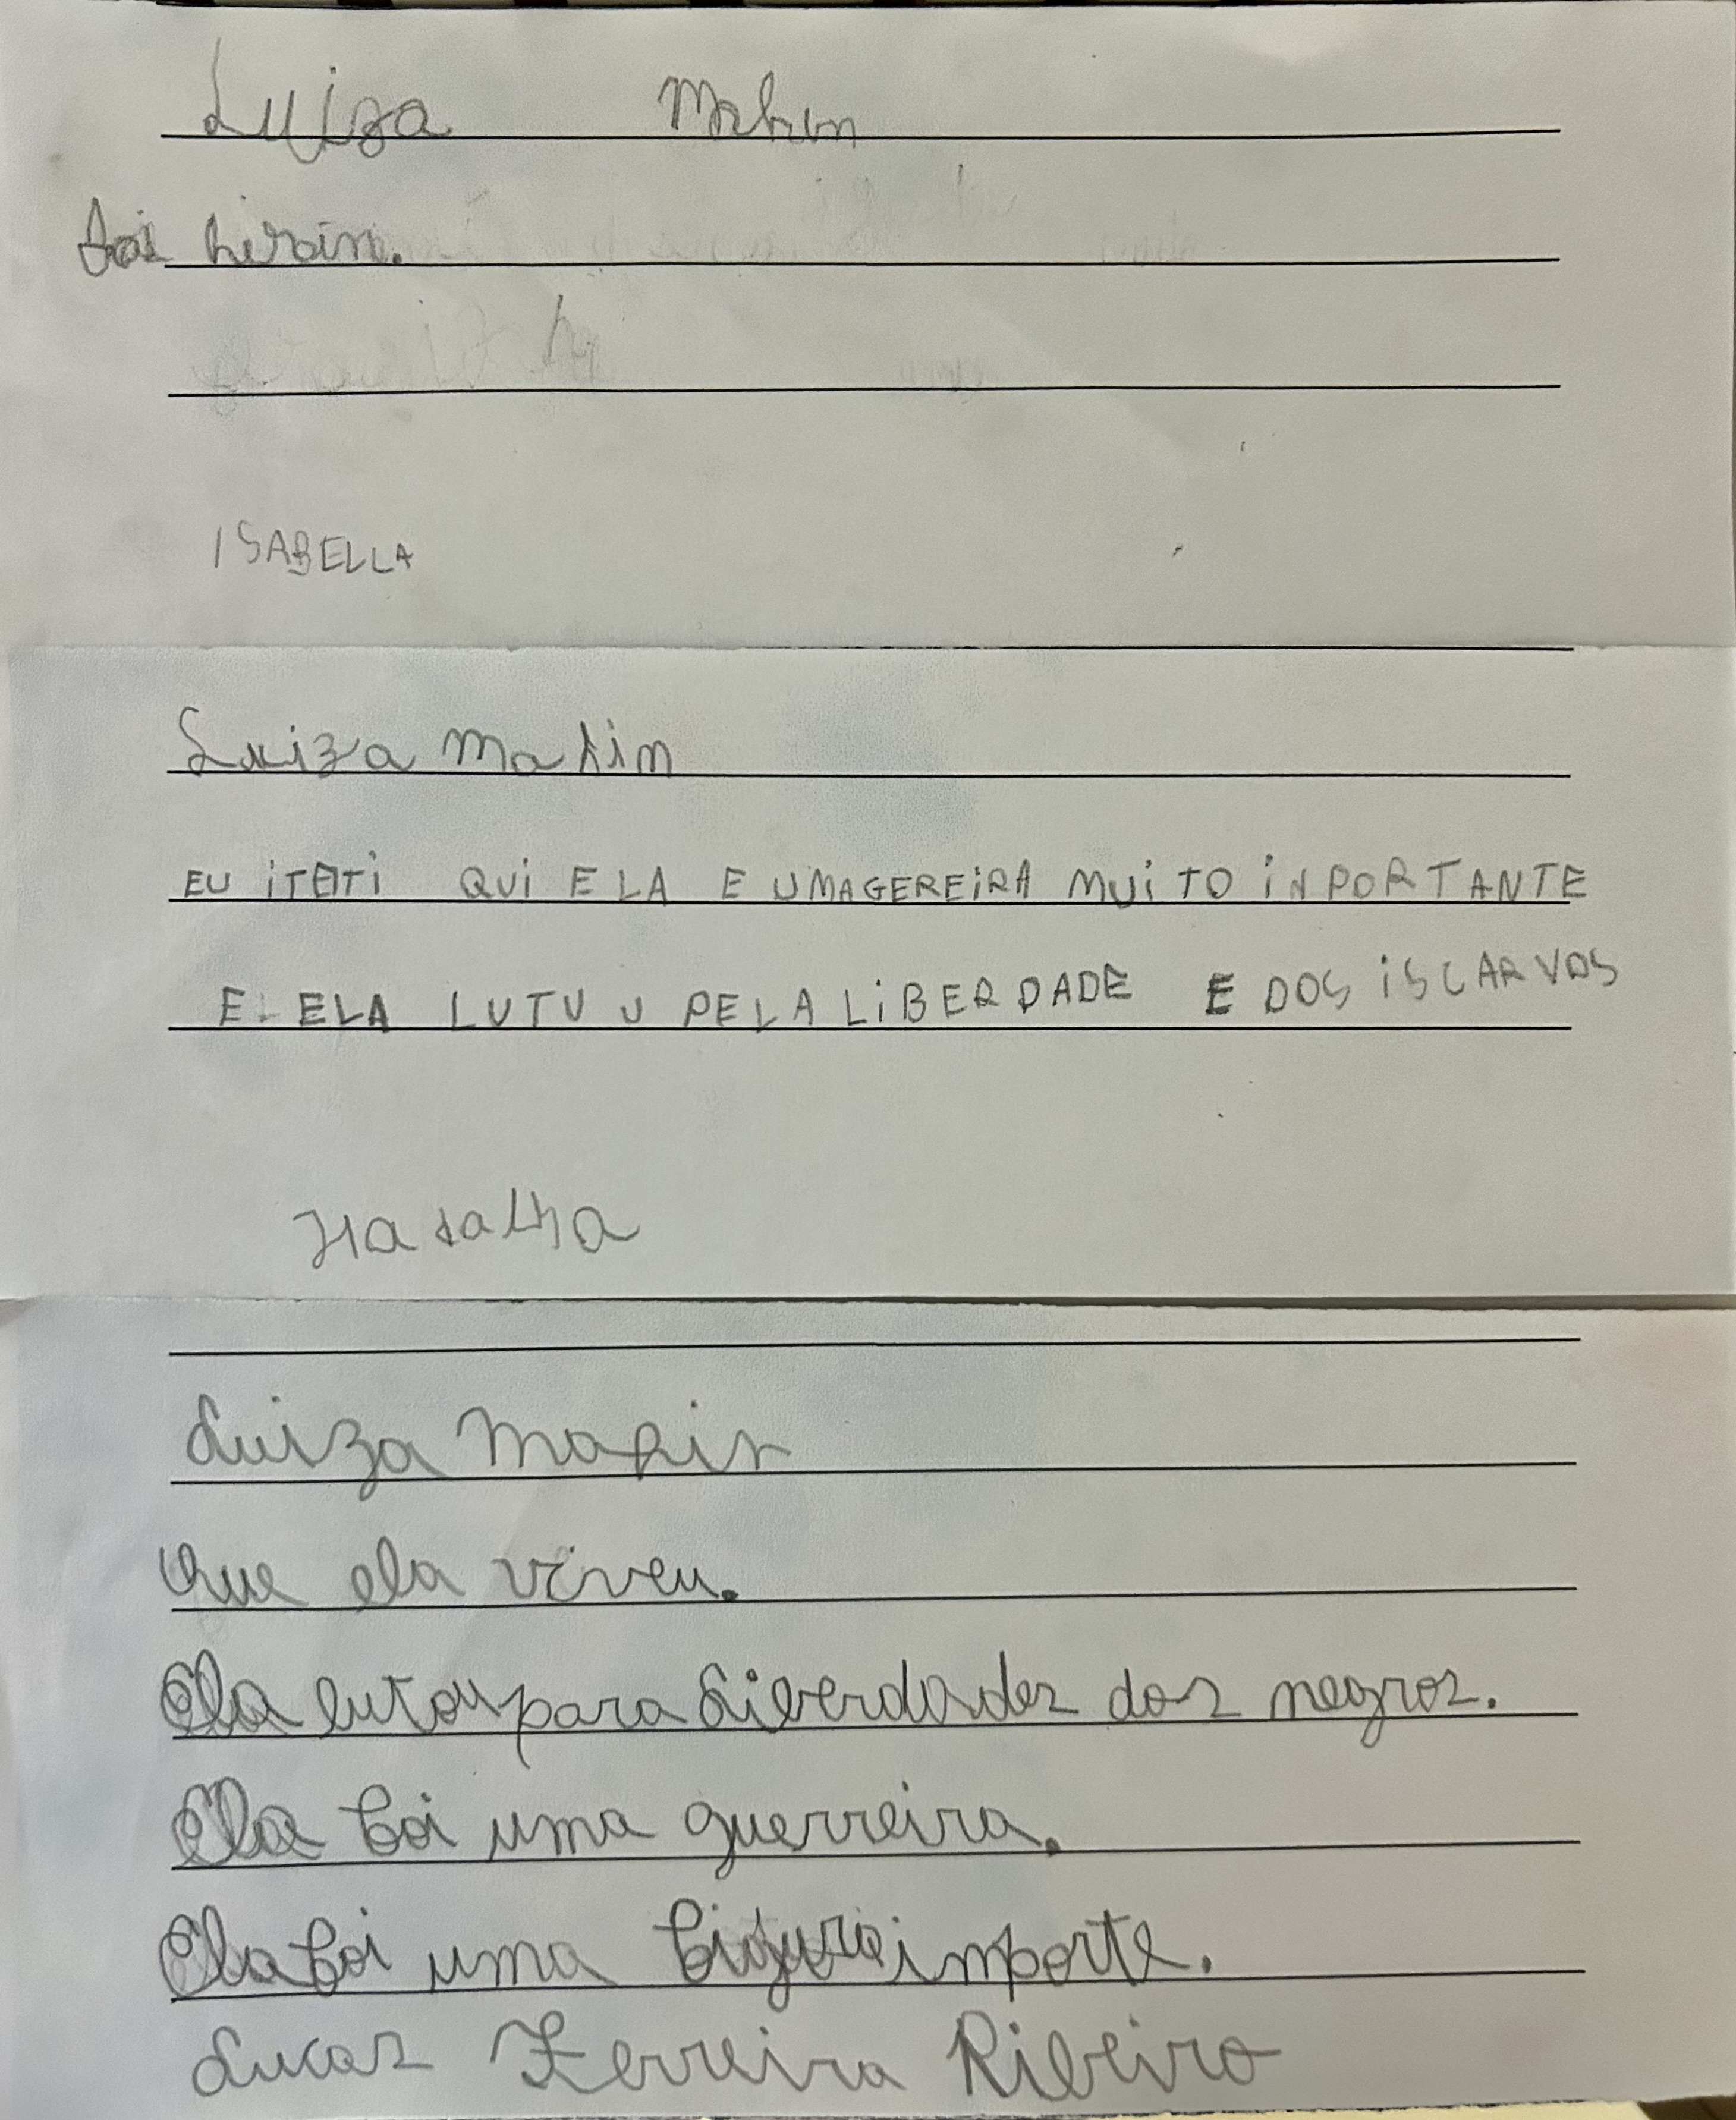 Luiza Mahin
foi heroin.
ISABELLA
Luiza Mahin
EU ITETI QUI ELA E UMAGEREIRA MUITO INPORTANTE
E ELA LUTUU PELA LIBERDADE E DOS ISCARVOS
Natalha
Luiza Mahin
Que ela viveu.
Ela lutou para Liberdades dos negros.
Ela foi uma guerreira.
Ela foi uma figura importe.
Lucas Ferreira Ribeiro